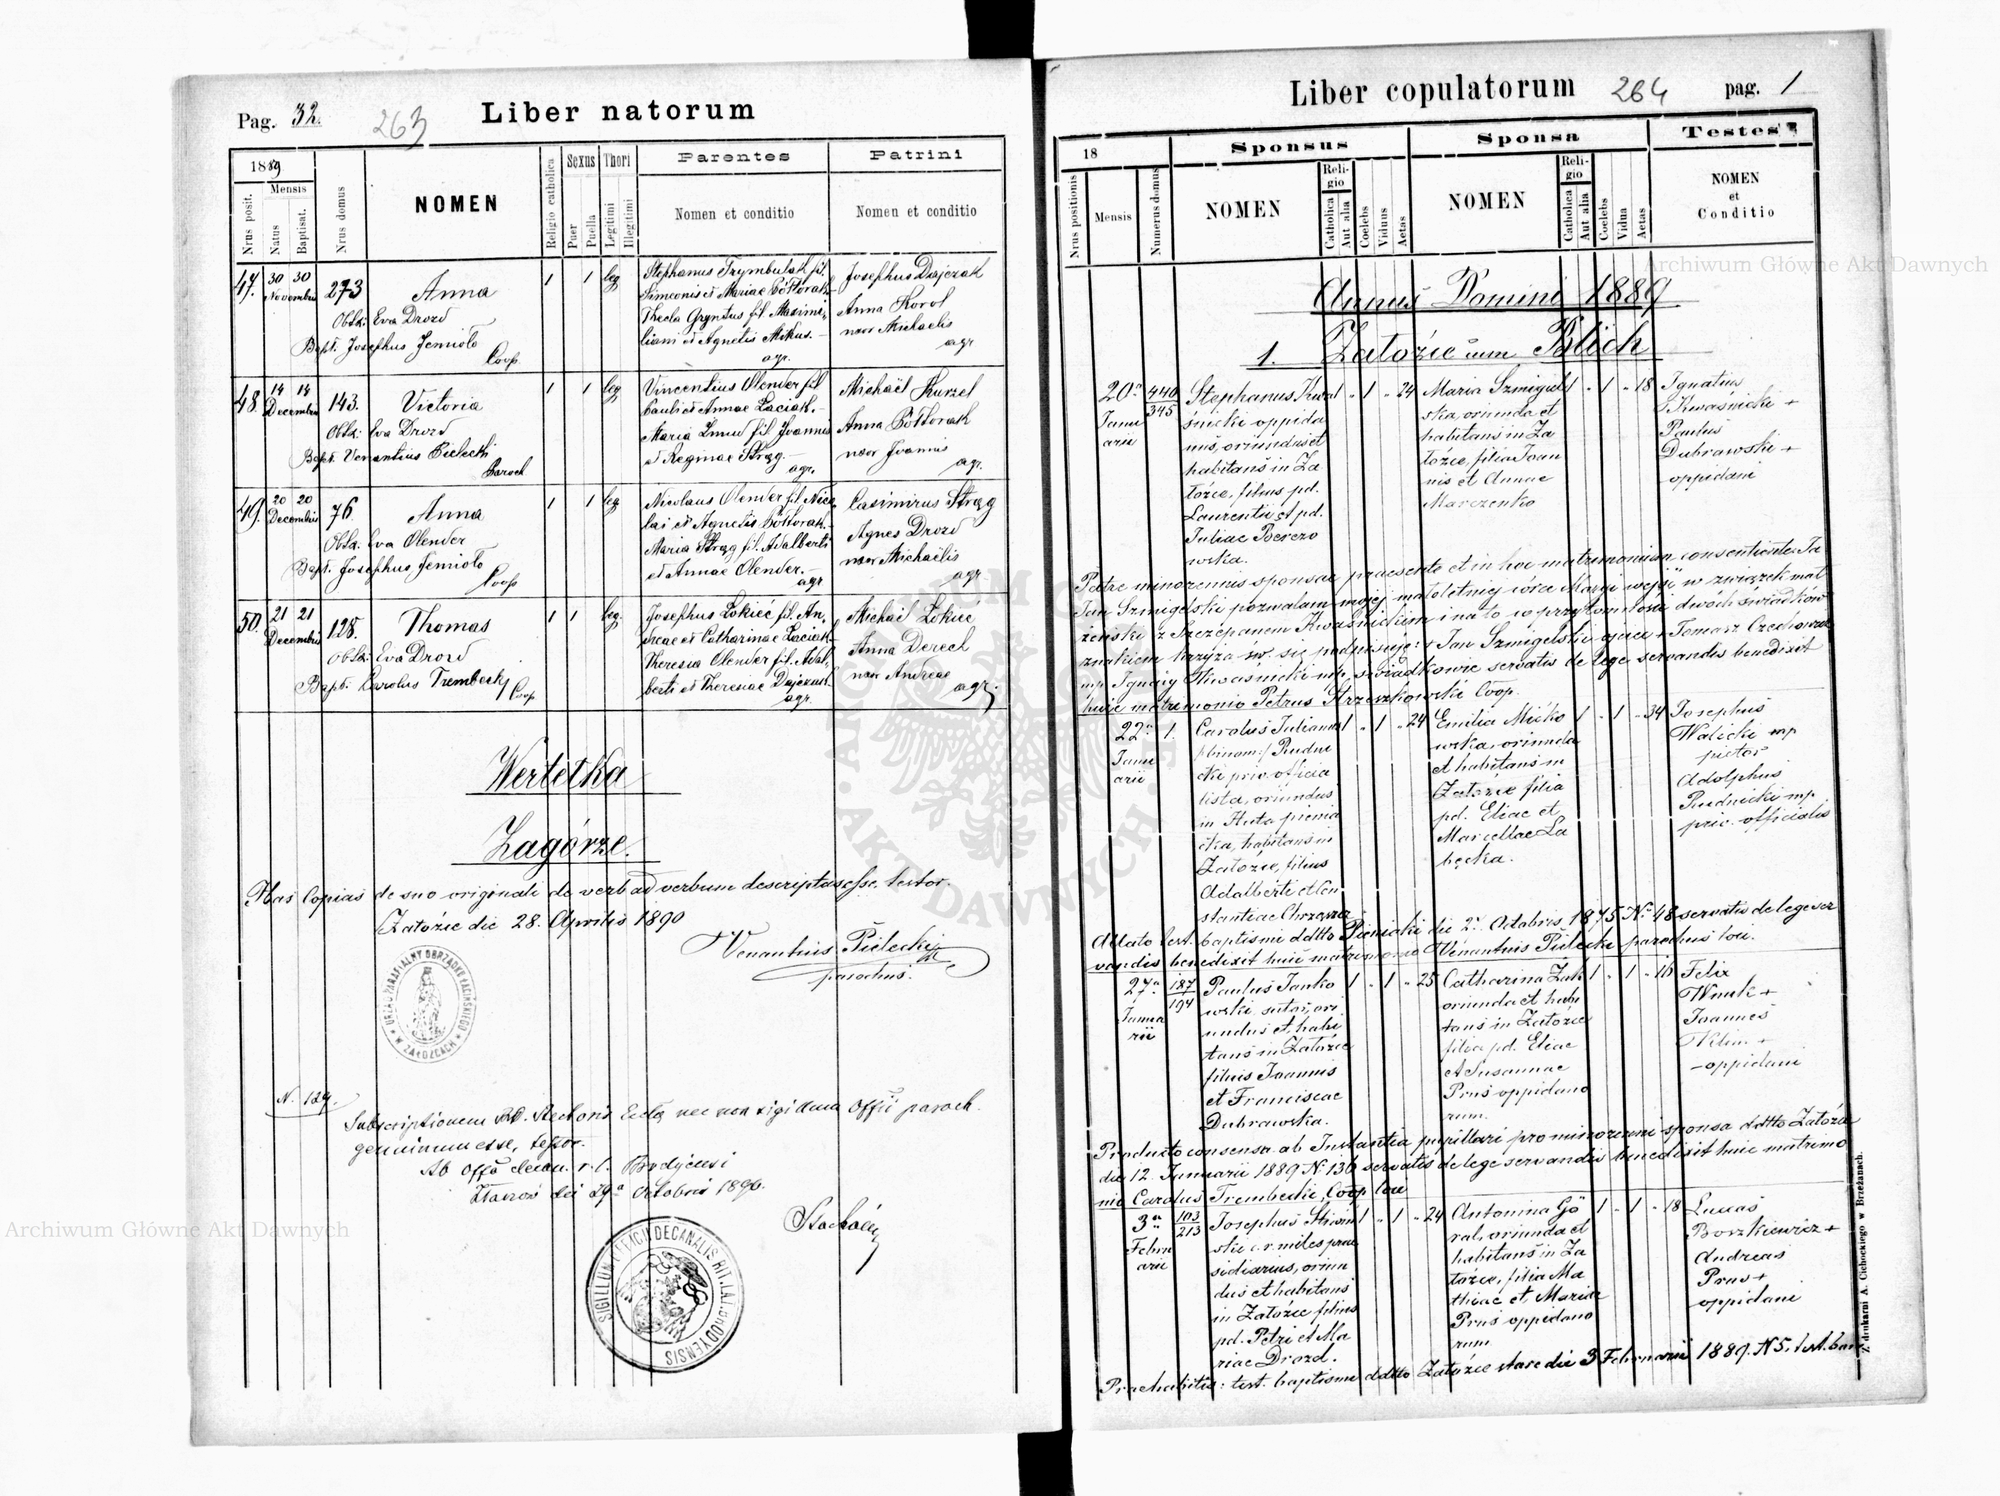 Pag. 32.
263
Liber natorum
1889
Nrus posit.
Mensis
Natus
Baptisat.
Nrus domus
NOMEN
Religio catholica
Sexus
Puer
Puella
Thori
Legitimi
Illegitimi
Parentes
Nomen et conditio
Patrini
Nomen et conditio
47. 30 30 Novembris 273 Anna 1 1 leg
Obst: Eva Drozd
Bapt. Josephus Jemioło
Coop.
Stephanus Trymbulak fil.
Simeonis et Mariae Półtorak
Thecla Gryndus fil Maximi-
liani et Agnetis Mikus.-
agr.
Josephus Dajczak
Anna Korol
uxor Michaelis
agr
48. 14 14 Decembris 143. Victoria 1 1 leg
Obst: Eva Drozd
Bapt. Venantius Pielecki
Paroch
Vincentius Olender fil
Pauli et Annae Łaciak.-
Maria Żmud fil Joannis
et Reginae Strąg.-
agr.
Michaël Kurzel
Anna Półtorak
uxor Joannis
agr.
49. 20 20 Decembris 76. Anna 1 1 leg
Obst. Eva Olender
Bapt. Josephus Jemioło
Coop
Nicolaus Olender fil. Nico
lai et Agnetis Półtorak.-
Maria Strąg fil. Adalberti
et Annae Olender.-
agr
Casimirus Strąg
Agnes Drozd
uxor Michaëlis
agr
50. 21 21 Decembris 128. Thomas 1 1 leg.
Obst: Eva Drozd
Bapt. Carolus Trembecki
Coop
Josephus Łokieć fil. An-
dreae et Catharinae Łaciak-
Theresia Olender fil. Adal-
berti et Theresiae Dajczak
agr.
Michaël Łokieć
Anna Derech
uxor Andreae
agr.
Wertełka
Zagórze.
Has Copias de suo originali de verb ad verbum descriptas esse testor.
Załoźce die 28. Aprilis 1890
Venantius Pielecki
parochus.
URZĄD PARAFIALNY OBRZĄDKU ŁACIŃSKIEGO
W ZAŁOŹCACH
N. 129.
Subscriptionem Rectoris Eccl nec non sigillum Offii paroch.
genuinum esse, testor.
Ab Offo decan. r. l. Brodyensi
die 29a Octobris 1890.
SIGILLUM OFFICII DECANALIS RIT. LAT. BRODYENSIS
Liber copulatorum
264
pag. 1
18
Nrus positionis
Mensis
Numerus domus
Sponsus
NOMEN
Religio
Catholica
Aut alia
Coelebs
Viduus
Aetas
Sponsa
NOMEN
Religio
Catholica
Aut alia
Coelebs
Vidua
Aetas
Testes
NOMEN
et
Conditio
Annus Domini 1889
1. Załoźce cum Blich
20a Januarii 440 345
Stephanus Kwa
śnicki oppida
nus, oriundus et
habitans in Za
łoźce, filius pd.
Laurentii et pd.
Juliae Berezo
wska.
1 - 1 - 24
Maria Szmigiel
ska, oriunda et
habitans in Za
łoźce, filia Joan
nis et Annae
Marczenko
1 - 1 - 18
Ignatius
Kwaśnicki +
Paulus
Dubrawski +
oppidani
Patre minorennis sponsae praesente et in hoc matrimonium consentiente: Ja
Jan Szmigelski pozwalam mojej małoletniej córce Maryi wejść w związek mał
żeński z Szczepanem Kwaśnickim i na to w przytomności dwóch świadków
znakiem krzyża św. się podpisuję: + Jan Szmigelski ojciec + Tomasz
mp Ignacy Kwaśnicki mp. świadkowie servatis de lege servandis benedixit
huic matrimonio Petrus Strzeszkowski Coop.
22a Januarii 1.
Carolus Julianus
/:binom:/ Rudni
cki priv. officia
lista, oriundus
in Huta pienia
cka, habitans in
Załoźce, filius
Adalberti et Con
stantiae
1 - 1 - 24
Emilia Micko
wska, oriunda
et habitans in
Załoźce filia
pd. Eliae et
Marcellae La
bęcka.
1 - 1 - 34
Josephus
Walicki mp
pictor
Adolphus
Rudnicki mp
priv. officialis
Allato test. baptismi ddtto Pieniaki die 2a Octobris 1875 No 48 servatis de lege ser
vandis benedixit huic matrimonio Venantius Pielecki parochus loci.
27a Januarii 187 194
Paulus Janko
wski, sutor, ori
undus et habi
tans in Załoźce
filius Joannis
et Franciscae
Dubrawska.
1 - 1 - 25
Catharina Żuk
oriunda et habi
tans in Załoźce
filia pd. Eliae
et Susannae
Prus oppidano
rum.
1 - 1 - 16
Felix
Wnuk +
Joannes
Klim +
- oppidani
Producto consensu ab Instantia pupillari pro minorenni sponsa ddtto Załoźce
die 12. Januarii 1889 N. 136 servatis de lege servandis benedixit huic matrimo
nio Carolus Trembecki, Coop loci
3a Februarii 103 213
ski c. r. miles prae
sidiarius, oriun
dus et habitans
in Załoźce filius
pd. Petri et Ma
riae Drozd.
1 - 1 - 24
Antonina Gó
ral, oriunda et
habitans in Za
łoźce, filia Ma
thiae et Mariae
Prus oppidano
rum
1 - 1 - 18
Lucas
Boszkiewicz +
Andreas
Prus +
oppidani
Praehabitis: test. baptismi ddtto Załoźce stare die 3 Februarii 1889. N 5. test. ban
Z drukarni A. Cichockiego w Brzeżanach.
Archiwum Główne Akt Dawnych
Archiwum Główne Akt Dawnych
ARCHIWUM GŁÓWNE AKT DAWNYCH